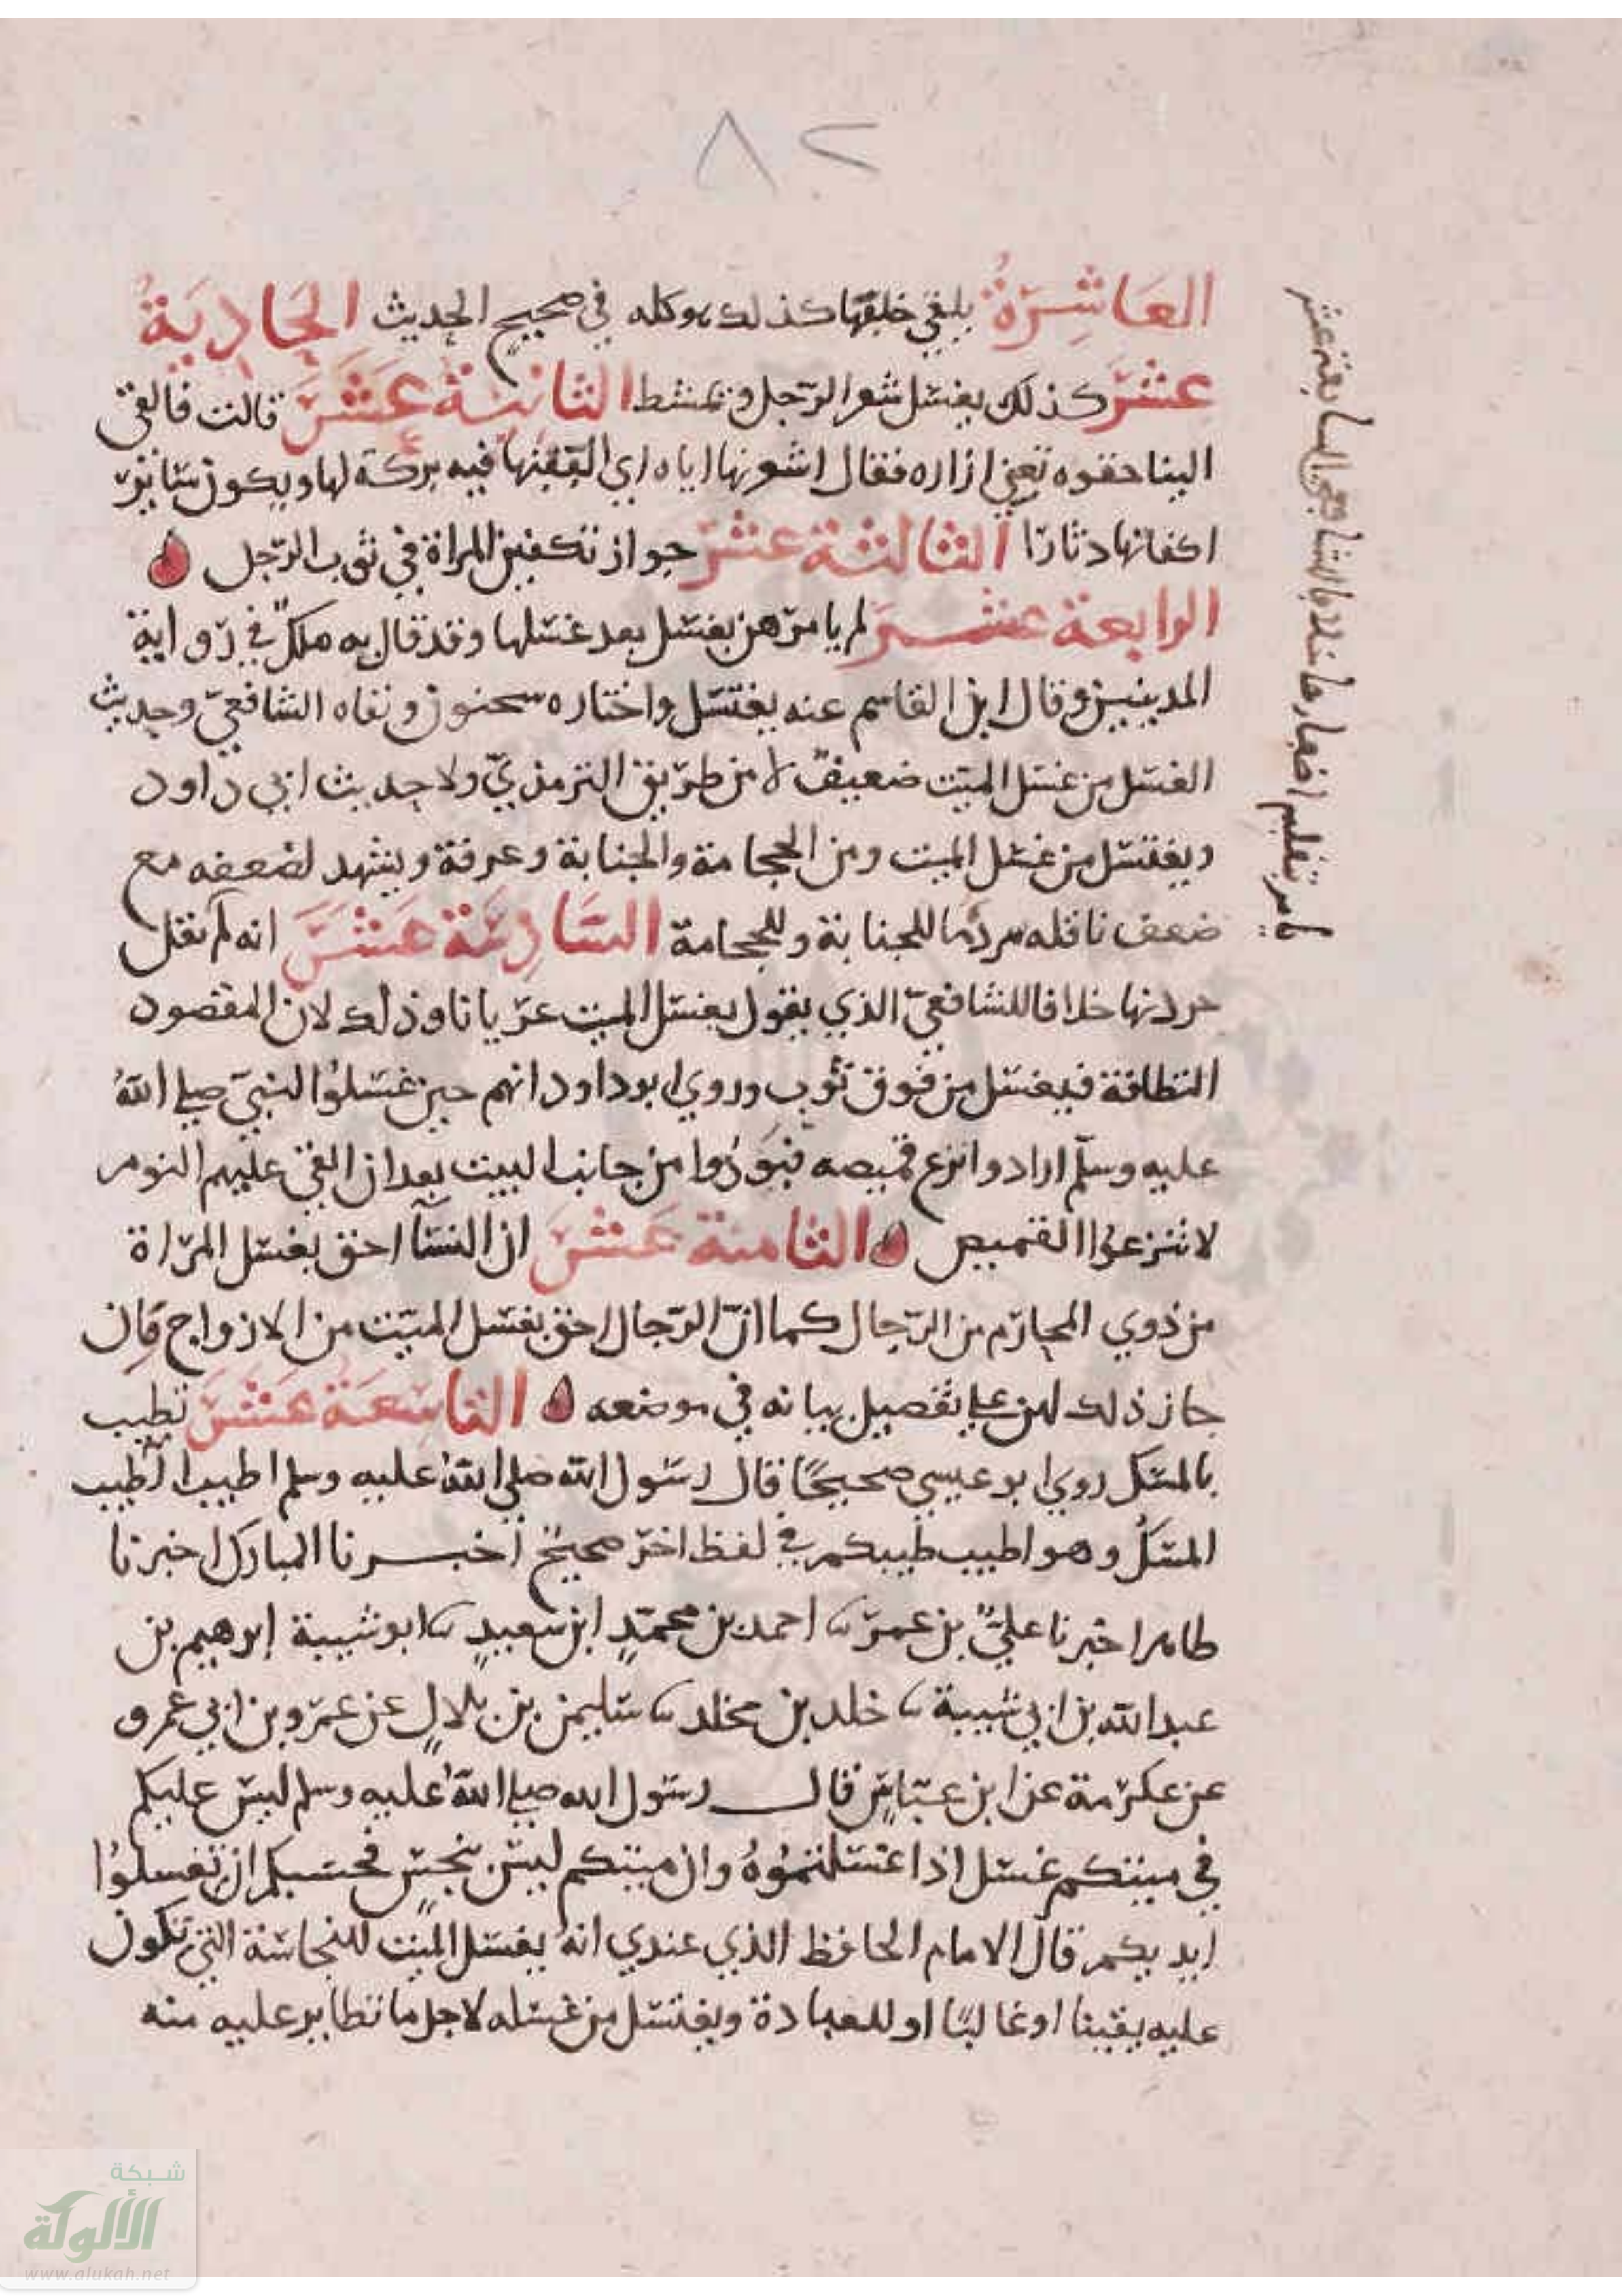 ٨٢
العَاشِرَةُ يلقي خلفها كذلك وكله في صحيح الحديث الحَادِيَةُ
عشَرَ كذلك يغسل شعر الرّجل ويمشط الثانية عَشَرَ قالت فالقى
الينا حقوه تعني ازاره فقال اشعرنها اياه اي الففنها فيه بركة لها ويكون سائر
اكفانها دثارًا الثالثة عشرَ جواز تكفين المراة في ثوب الرّجل
الرابعة عشرَ لم يامرهن بغسل بعد غسلها وقد قال به ملك في رواية
المدنيين وقال ابن القاسم عنه يغتسل واختاره سحنون ونفاه الشافعيّ وحديث
الغسل من غسل الميّت ضعيفٌ لا من طريق الترمذيّ ولا حديث ابي داود
ويغتسل من غسل الميت ومن الحجامة والجنابة وعرفة ويشهد لضعفه مع
ضعف ناقله سردها للجنابة وللحجامة السَّادِسَة عَشَرَ انه لم نقل
جردنها خلافا للشافعيّ الذي يقول يغسل الميت عريانا وذلك لان المقصود
النظافة فيغسل من فوق ثوب وروى ابو داود انهم حين غسلوُا النبيّ صلى اللهُ
عليه وسلّم ارادوا نزع قميصه فنوُدُوا من جانب البيت بعد ان القى عليهم النوم
لا تنزعوُا القميص الثامنة عَشَرَ ان النسآ احق بغسل المرْاة
من ذوي المحارم من الرّجال كما انّ الرّجال احق بغسل الميّت من الازواج فان
جاز ذلك لهن على تفصيل بيانه في موضعه التاسِعَة عَشَرَ تطيب
بالمسك روى ابو عيسى صحيحًا قال رسول الله صلى اللهُ عليه وسلم اطيب الطيب
المسكُ وهو اطيب طيبكم في لفظ اخر صحيحٌ أخبرنا المبارك اخبرنا
طاهر اخبرنا عليٌّ بن عمرَ نا احمد بن محمّدٍ ابن سعيدٍ نا ابو شيبة إبرهيم بن
عبد الله بن ابي شيبة نا خلد بن مخلد نا سليمن بن بلالٍ عن عمرو بن ابي عمرو
عن عكرمة عن ابن عبّاسٍ قال رسول الله صلى اللهُ عليه وسلم ليس عليكم
في ميتكم غسل اذا غسلتموُهُ وان ميتكم ليس بنجسٍ فحسبكم ان تغسلوُا
ايديكم قال الامام الحافظ الذي عندي انهُ يغسل الميت للنجاسة التي تكون
عليه يقينا او غالبًا او للعبادة ويغتسل من غسله لاجل ما تطاير عليه منه
السابعة عشر
يامر بتقليم اظفارها خلافا للشافعي
شبكة
الألوكة
www.alukah.net